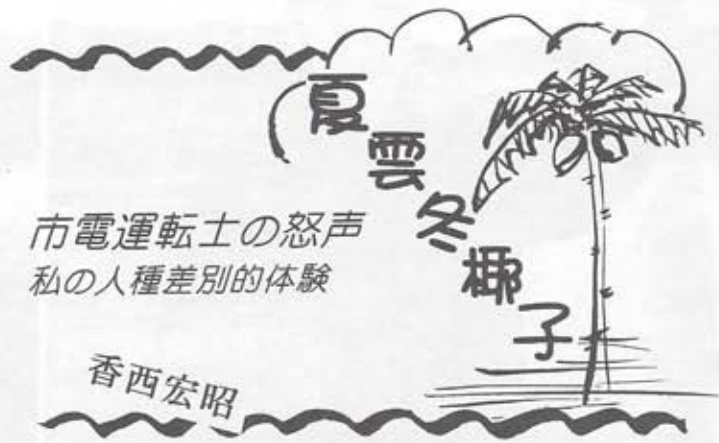 夏雲冬椰子
市電運転士の怒声
私の人種差別的体験
香西宏昭